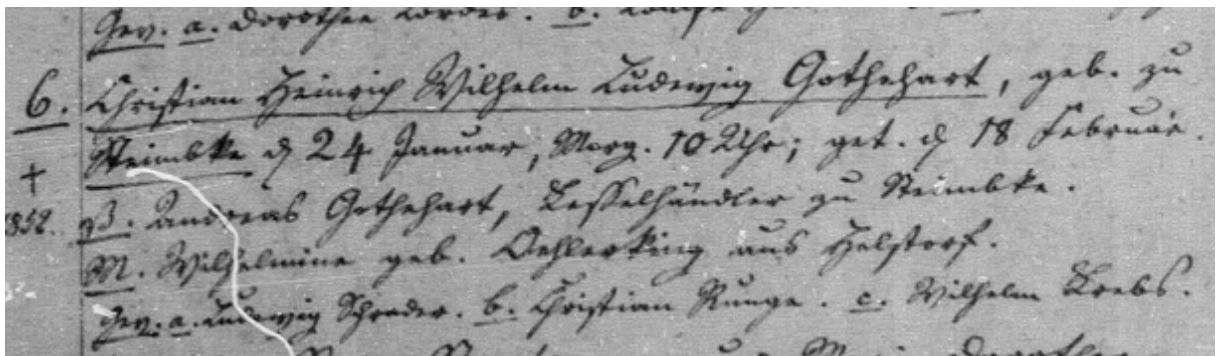 Gev. a. Dorothee Cordes. b.
6. Christian Heinrich Wilhelm Ludewig Gothehart, geb. zu
Steimbke d 24 Januar, Morg. 10 Uhr; get. d 18 Februar.
†
1852. V. Andreas Gothehart, Kesselhändler zu Steimbke.
M. Wilhelmine geb. Oehlerking aus Helstorf.
Gev. a. Ludewig Schrader. b. Christian Runge. c. Wilhelm Krebs.